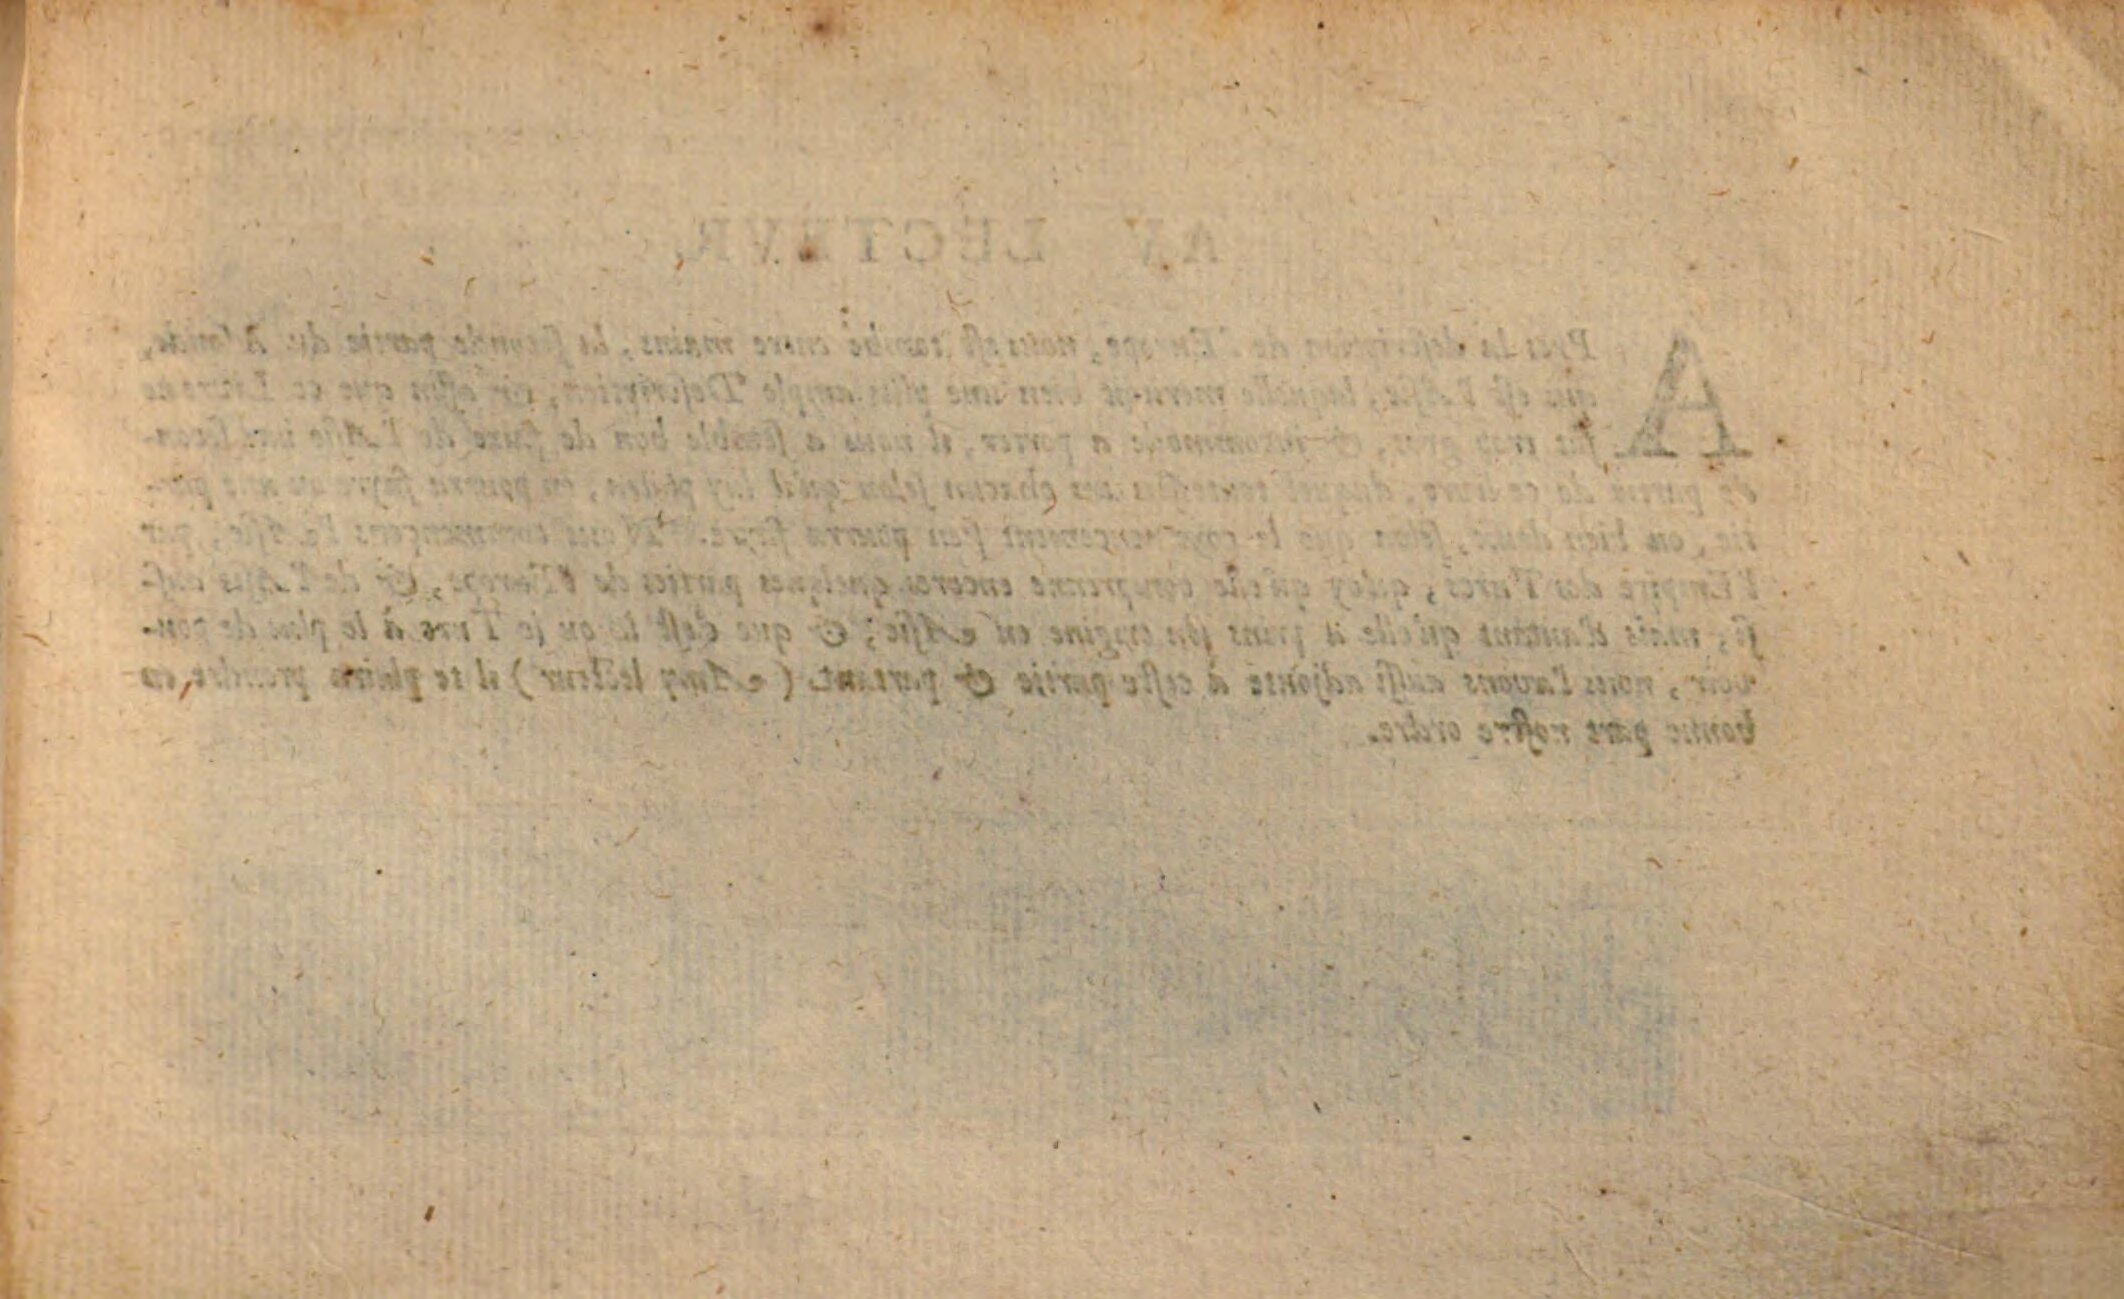 AV LECTEVR,
APres la description de l'Europe, nous est tombé entre mains, la seconde partie du Monde,
qui est l'Asie, laquelle merite bien une plus ample Description, & affin que ce Livre ne
fut trop gros, & incommode a porter, il nous a semblé bon de faire de l'Asie une secon-
de partie de ce livre, duquel chacun selon qu'il luy plaira, en pourra fayre ou une par-
tie, ou bien deux, selon que le pourra fayre. Nous commençons l'Asie, par
l'Empire des Turcs, quoy qu'elle comprenne encores quelques parties de l'Europe, & de l'Asie aus-
si, mais d'autant qu'elle a prins son origine en Asie, & que c'est là ou le Turc à le plus de pou-
voir, nous l'avons aussi adjointe à ceste partie & partant (Amy lecteur) il te plaira prendre en
bonne part nostre ordre.